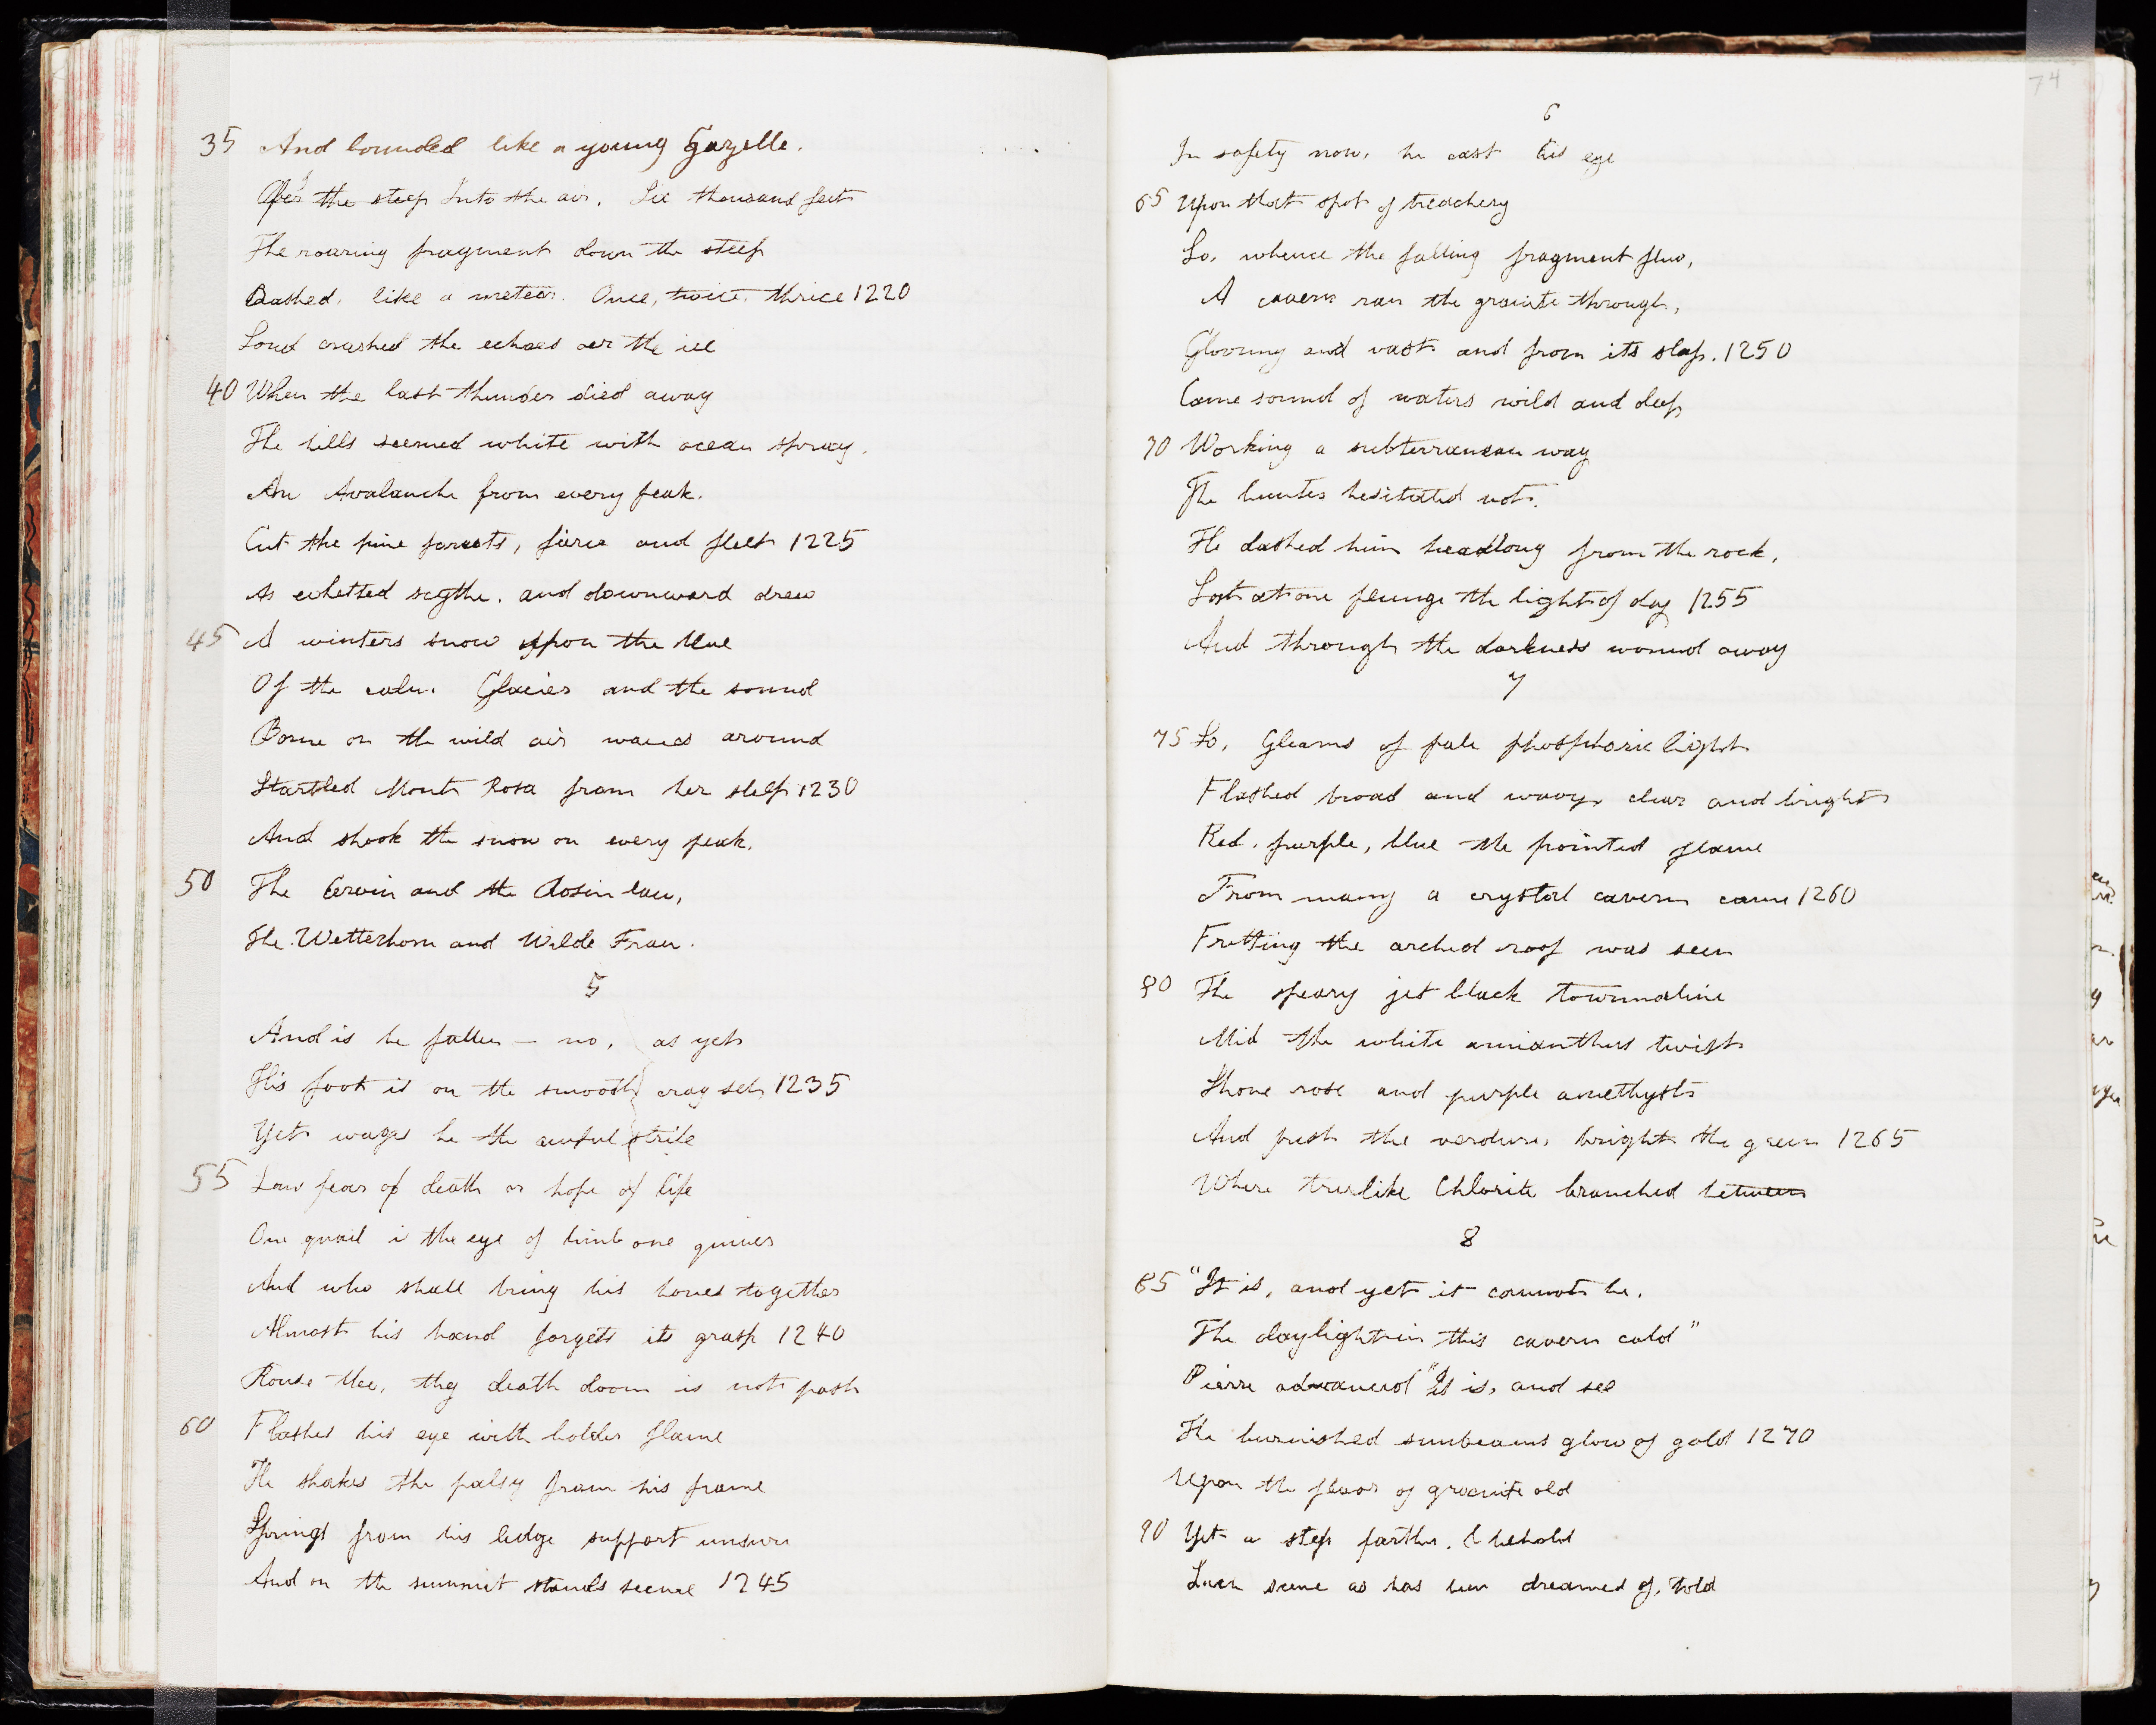 35 And bounded like a young Gazelle.
Oer the steep Into the air. Six thousand feet
The roaring fragment down the steep
Dashed, like a meteor. Once, twice, thrice 1220
Loud crashed the echoes oer the ice
40 When the last thunder died away
The hills seemed white with ocean spray.
An Avalanche from every peak.
Cut the pine forests, fierce and fleet 1225
As whetted scythe. and downward drew
45 A winters snow upon the blue
Of the calm Glacier and the sound
Borne on the wild air waves around
Startled Mont Rosa from her sleep 1230
And shook the snow on every peak.
50 The Cervin and the Rosin lau,
The Wetterhorn and Wilde Frau.
5
And is he fallen — no, as yet
His foot is on the smooth crag set 1235
Yet wages he the awful strife
55 Low fear of death or hope of life
One quail i the eye of limb one quiver
And who shall bring his bones together
Almost his hand forgets its grasp 1240
Rouse thee, thy death doom is not past
60 Flashes his eye with bolder flame
He shakes the palsy from his frame
Springs from his ledge support unsure
And on the summit stands secure 1245
74
6
In safety now, he cast his eye
65 Upon that spot of treachery
Lo, whence the falling fragment flew,
A cavern ran the granite through,
Gloomy and vast and from its slep. 1250
Came sound of waters wild and deep
70 Working a subterranean way
The hunter hesitated not.
He dashed him headlong from the rock,
Lost at one plunge the light of day 1255
And through the darkness wound away
7
75 Lo, Gleams of pale phosphoric light
Flashed broad and wavy, clear and bright
Red, purple, blue the pointed flame
From many a crystal cavern came 1260
Fretting the arched roof was seen
80 The speary jet black tourmaline
Mid the white amianthus twist
Shone rose and purple amethyst
And fresh the verdure, bright the green 1265
Where treelike Chlorite branched between
8
85 "It is, and yet it cannot be,
The daylight in this cavern cold"
Pierre advanced "It is, and see
The burnished sunbeams glow of gold 1270
Upon the floor of granite old
90 Yet a step farther, & behold
Such scene as has been dreamed of, told